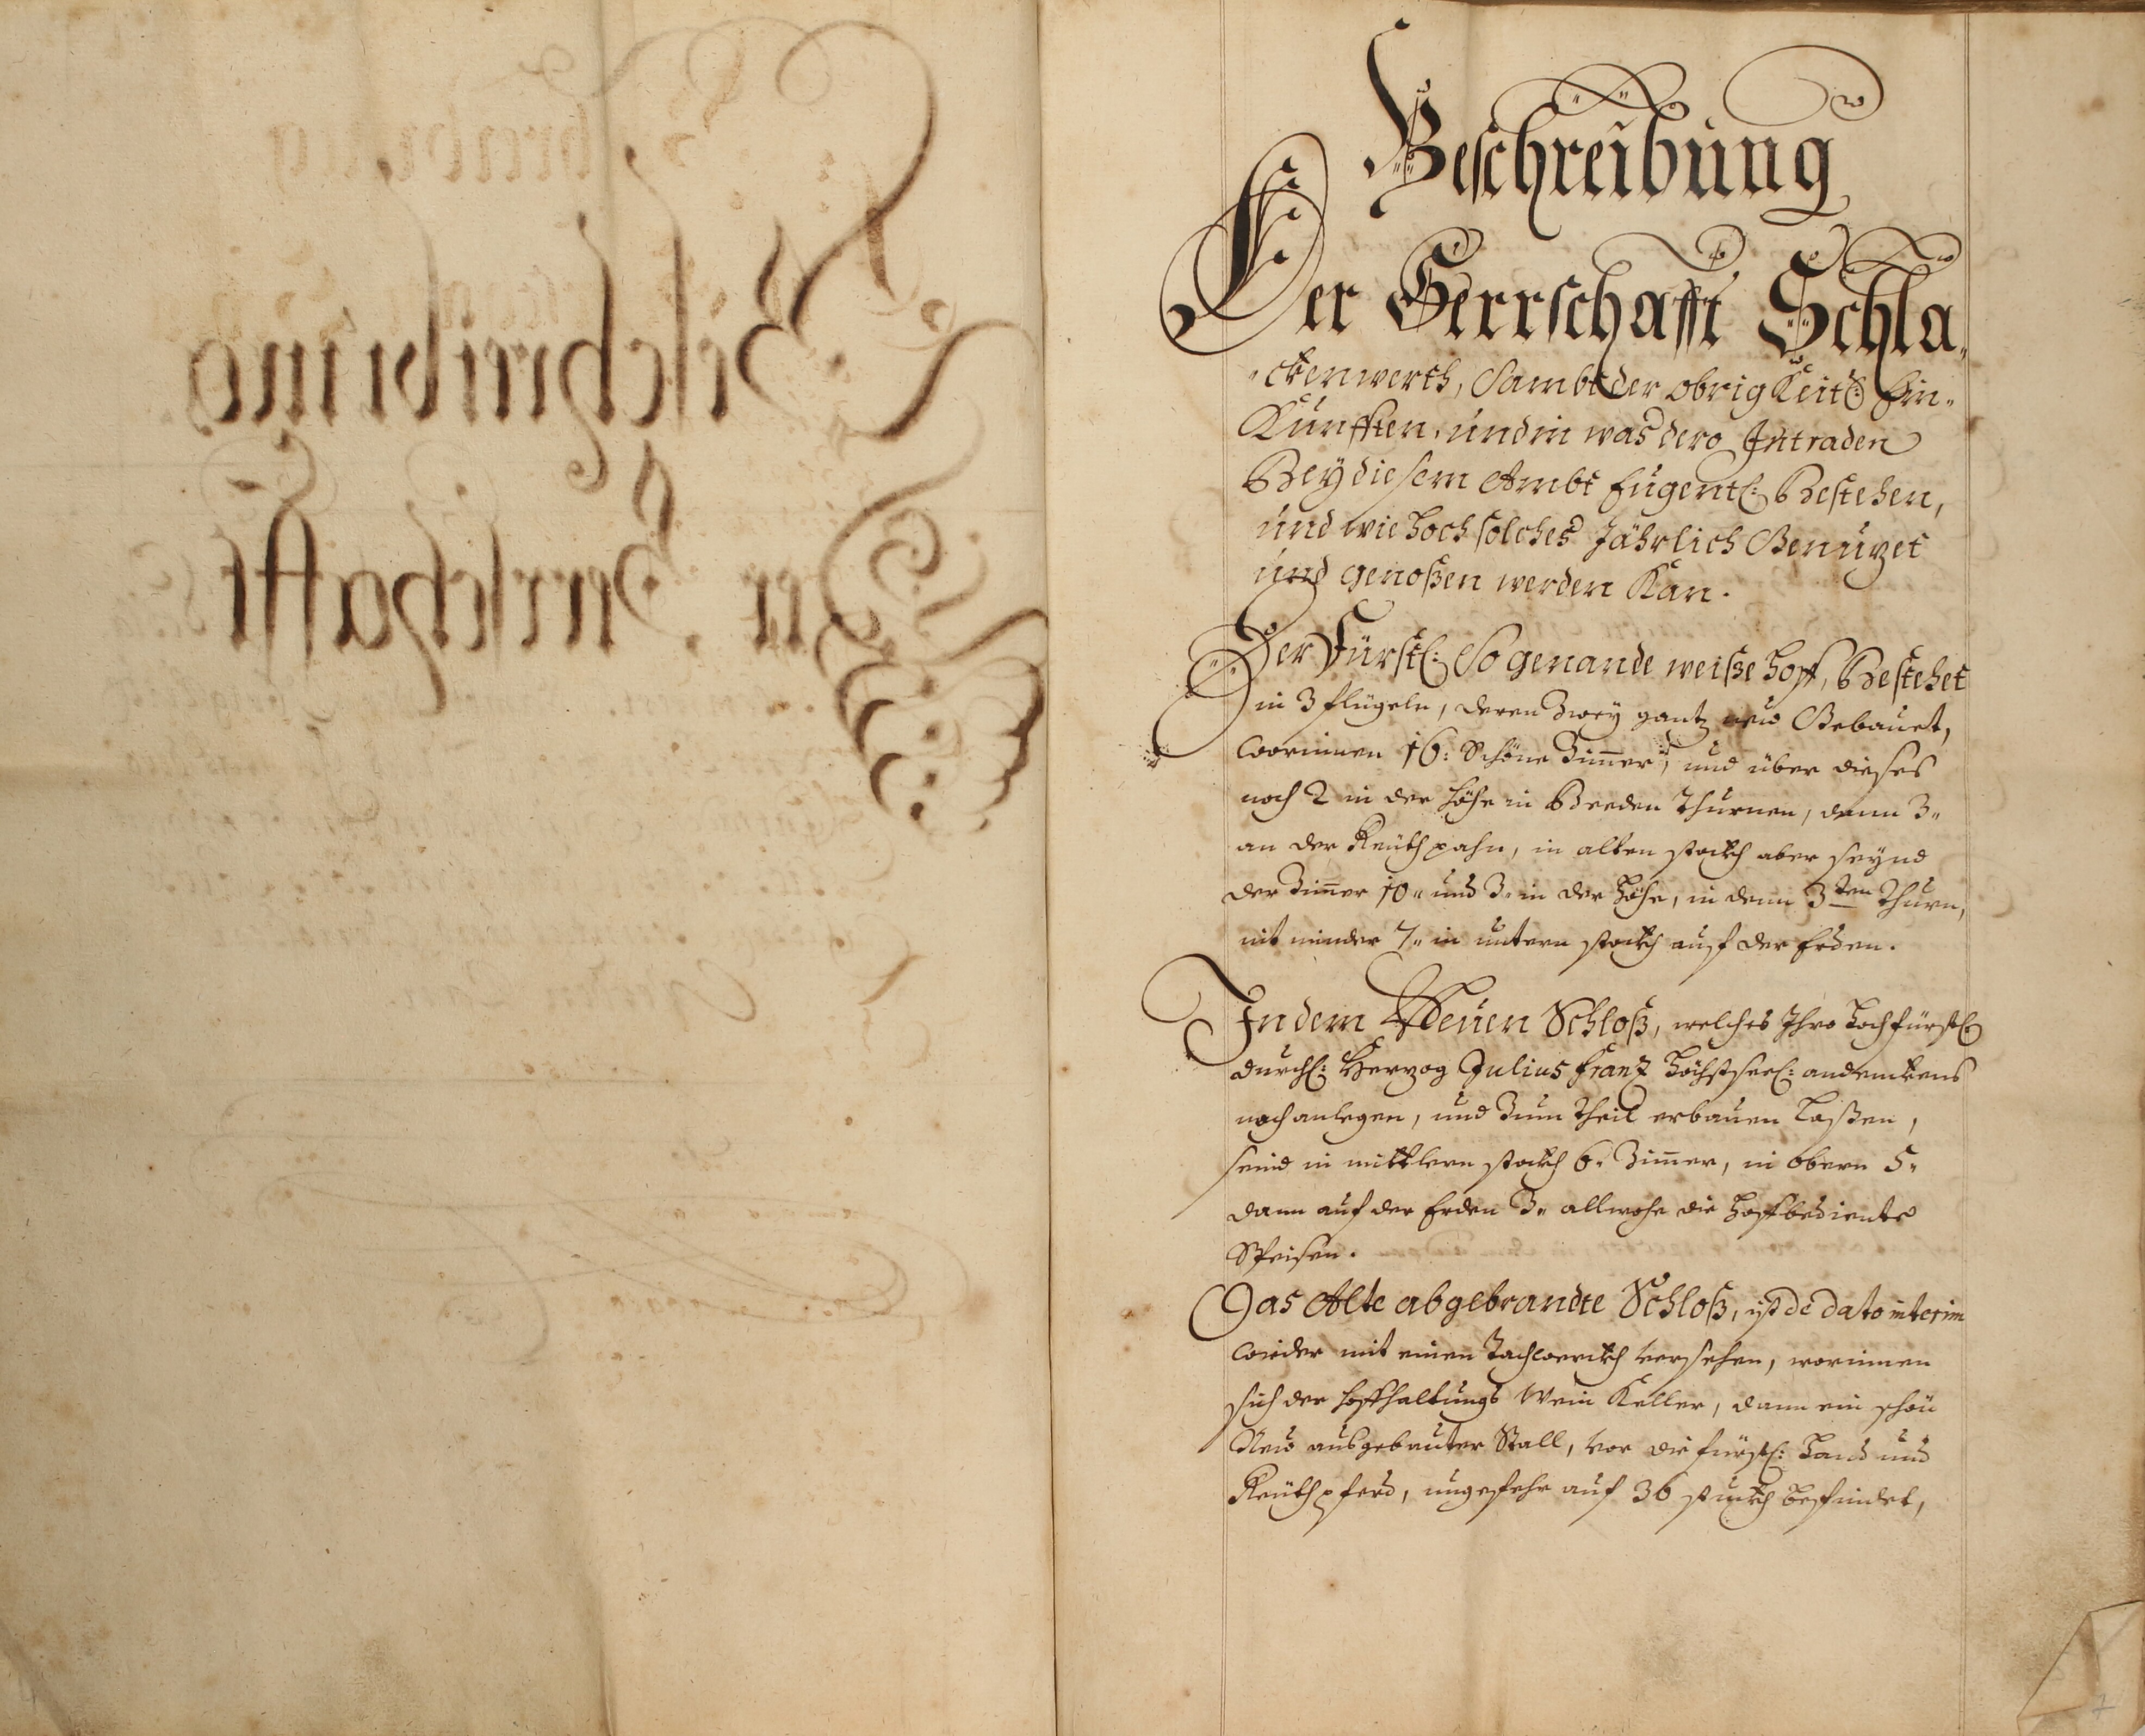 Beschreibung
Der Herrschafft Schla„
„ckenwerth, Sambt der obrigkeitl: Ein„
Künfften, und in was dero Intraden
Bey diesem Ambt Eugentl: Bestehen,
und wie hoch solches Jährlich Benuzet
und genoßen werden Kan.
Der Fürstl: So genande weiße hoff, Bestehet
in 3 flügeln, deren Zwey gantz new Gebauet,
worinnen 16: Schöne Zim̄er, und über dieses
noch 2 in der höhe in Beeden Thürnen, dann 3„
an der Reüthpahn, in alten stockh aber seynd
der Zim̄er 10„ und 3„ in der höhe, in dem 3ten Thurn,
nit minder 7„ in untern stockh auf der Erden.
In dem Neuen Schloß, welches Ihro hochfürstl:
durchl: Herzog Julius Franz höchstseel: andenckens
noch anlegen, und Zum theil erbauen laßen,
seind in mittlern stockh 6„ Zim̄er, in obern 5„
dann auf der Erden 3„ allwohe die hoffbediente
Speisen.
Das Alte abgebrandte Schloß, ist de dato interim
wieder mit einen Tachwerckh versehen, worinnen
sich der hoffhaltungs Wein Keller, dann ein schön
New ausgebauter Stall, vor die fürstl: hand und
Reüthpferd, ungefehr auf 36 stuckh befindet,